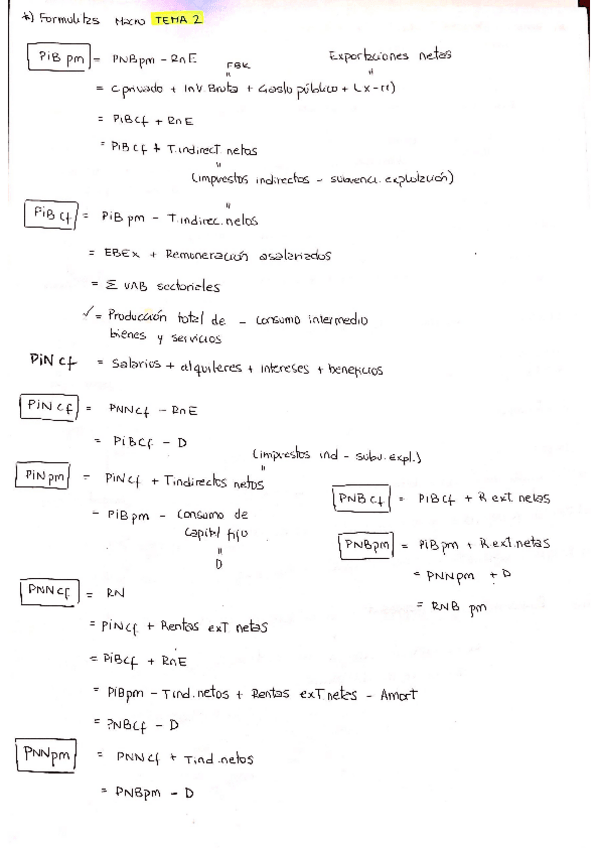 *) Formulitas Macro TEMA 2
PiB pm = PNBpm - RnE
FBK Exportaciones netas
= Cprivado + Inv.Bruta + Gasto público + (x-m)
= PiBcf + RnE
= PiBcf + T.indirect.netos
(impuestos indirectos - subvenci. explotación)
PiB cf = PiB pm - T.indirec.netos
= EBEx + Remuneración asalariados
= Σ VAB sectoriales
✓ = Producción total de - consumo intermedio
bienes y servicios
PiN cf = Salarios + alquileres + intereses + beneficios
PiN cf = PNNcf - RnE
= PiBcf - D
(impuestos ind - subv. expl.)
PiN pm = PiNcf + Tindirectos netos
- PiB pm - Consumo de
capital fijo
D
PNB cf = PiBcf + R ext. netas
PNBpm = PiBpm + R ext.netas
= PNNpm + D
= RNB pm
PNNcf = RN
= PiNcf + Rentas ext netas
= PiBcf + RnE
= PiBpm - Tind.netos + Rentas ext netas - Amort
= PNBcf - D
PNNpm = PNNcf + Tind.netos
= PNBpm - D